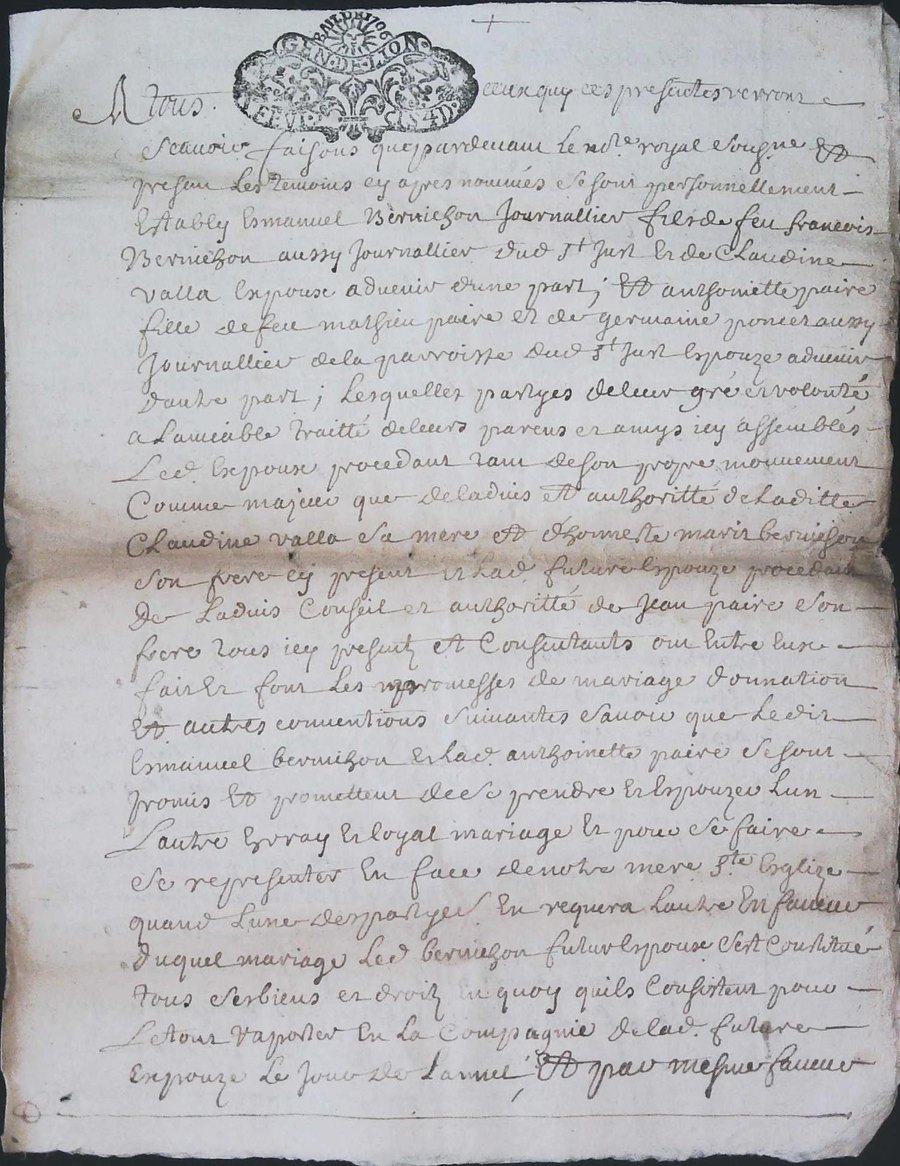 BAIL DE 1706
GEN·DE·LION·
A tous ceux quy ces presentes verront
Scavoir faisons que pardevant le no.re royal Sousne et
presan les temoins cy apres nommés se sont personnellement
Estably Emanuel Bernichon Journallier fils de feu francois
Bernichon aussy Journallier dud St Just et de Claudine
valla Expoux advenir dune part, Et anthoinette paire
fille de feu mathieu paire et de germaine poncet aussy
Journallier de la parroisse dud St Just Espouze advenir
dautre part ; Lesquelles partyes de leur gré et volonté
a Lamiable traitté de leurs parens et amys icy assemblés
Led. Expoux procedant tant de son propre mouvement
Comme majeur que de ladvis et anthoritté de Laditte
Claudine valla sa mere et dhonneste marit bernichon
son frere cy present Et Lad. future Espouze procedant
De Ladvis Conseil et anthoritté de Jean paire son
frere tous icy presentz et Consentants ont Entre Eux
fait Et font les promesses de mariage donnation
Et autres conventions suivantes savoir que Ledit
Emanuel bernichon Et Lad. anthoinette paire se sont
promis Et promettent de se prendre Et Espouzer Lun
Lautre En vray Et loyal mariage Et pour se faire
se representer En face de notre mere Ste Esglize
quand Lune des partyes En requera Lautre En faveur
duquel mariage Led bernichon futur Espoux sest Constitué
tous ses biens et droitz En quoy quils Consistent pour
Le tout raporter En La Compagnie de lad. future
Expouze Le Jour de Lannel, Et par mesme faveur